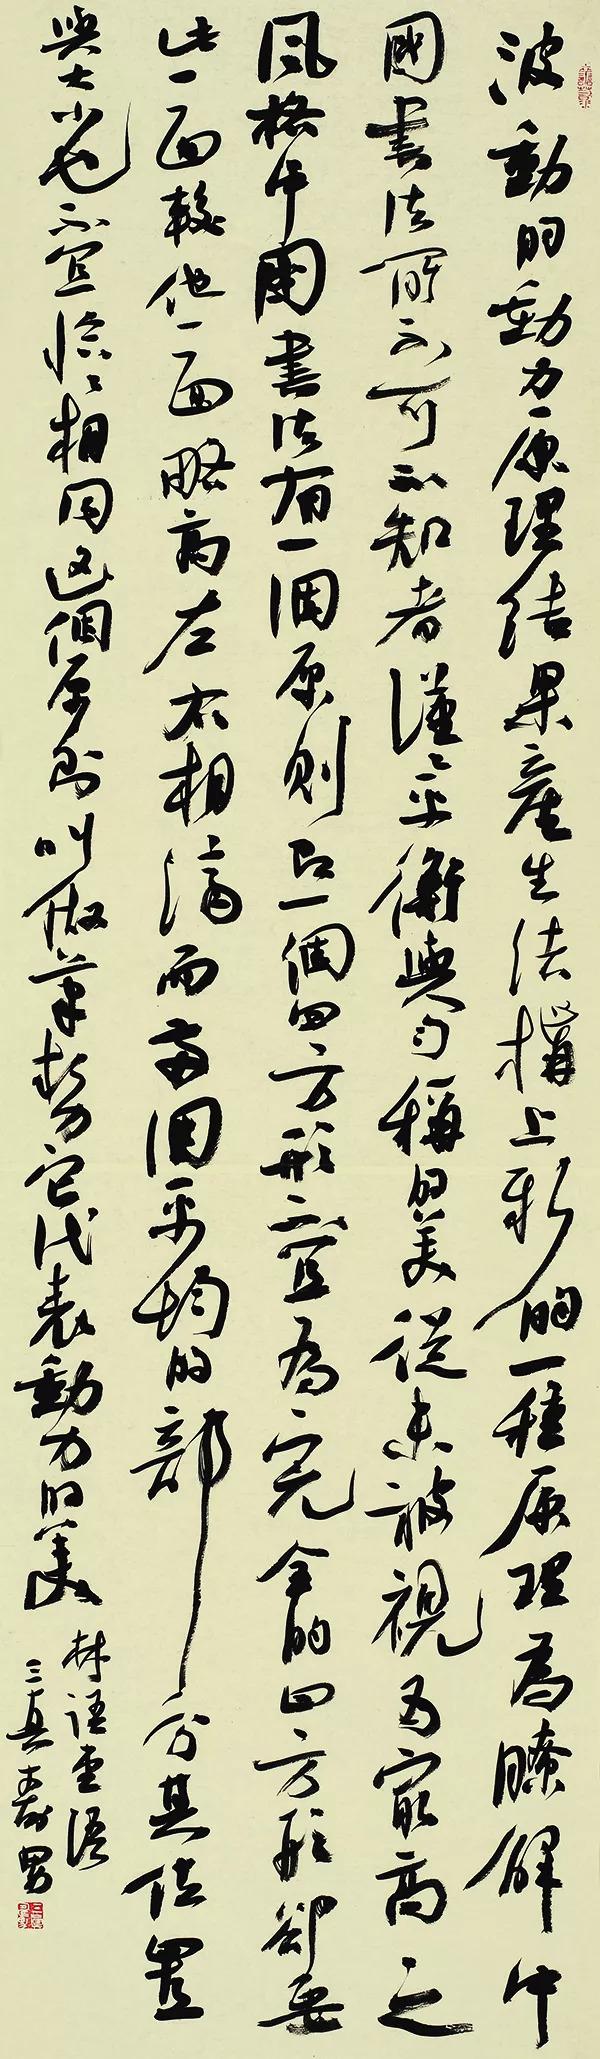 波動的動力原理結果產生結構上新的一種原理為瞭解中
國書法所不可不知者僅平衡與勻稱的美從未被視為最高之
風格中國書法有一個原則即一個四方形不宜為完全的四方形卻要
此一面較他一面略高左右相濟而兩個平均的部分其位置
與大小也不宜恰恰相同這個原則叫做筆勢它代表動力的美
林語堂語
三真壽男